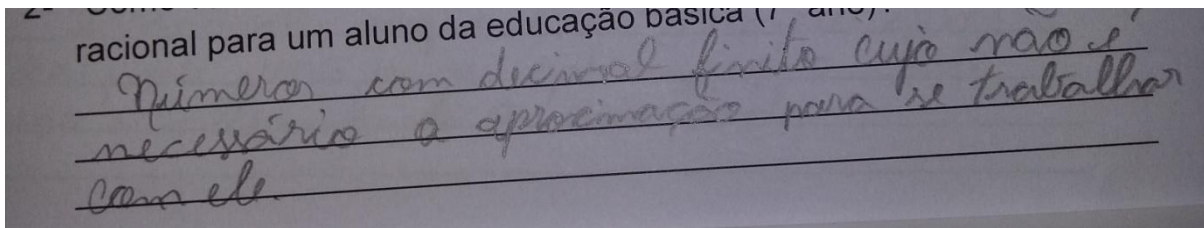 racional para um aluno da educação básica (7º ano)?
Números com decimal finito cujo não é
necessário a aproximação para se trabalhar
com ele.